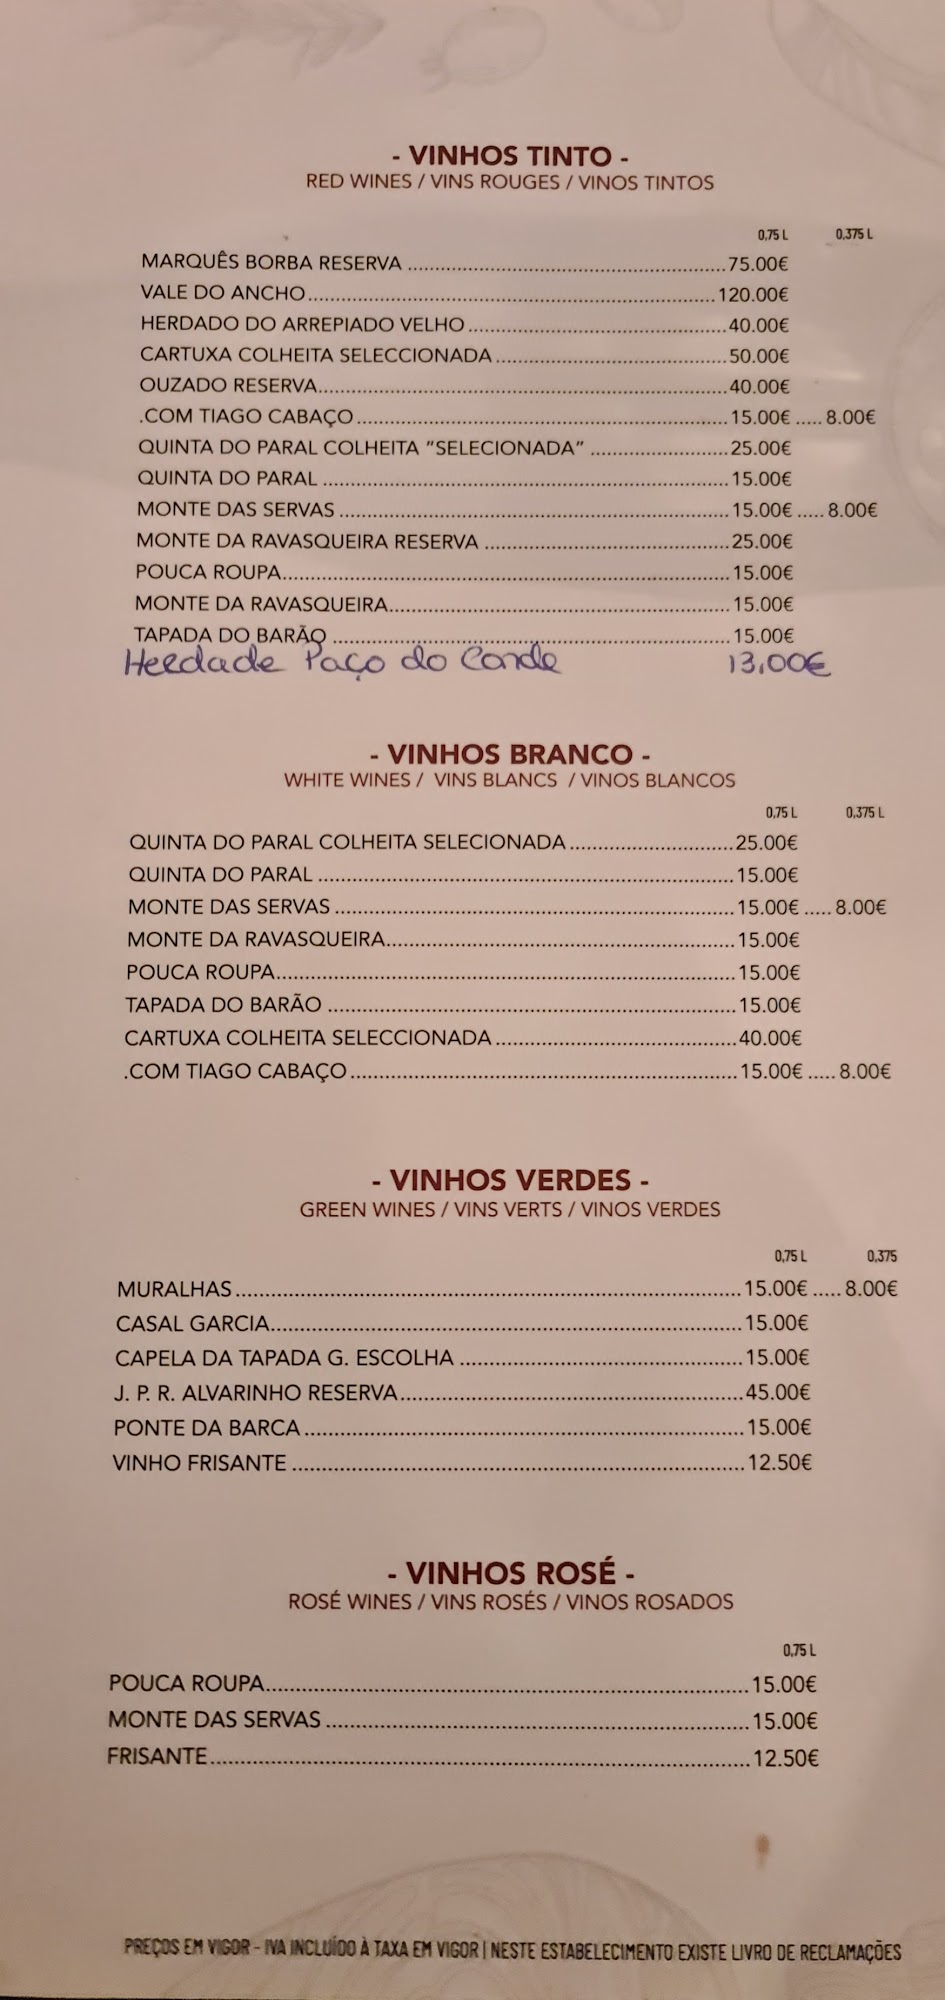 - VINHOS TINTO -
RED WINES / VINS ROUGES / VINOS TINTOS
0,75 L 0,375 L
MARQUÊS BORBA RESERVA ........ 75.00€
VALE DO ANCHO ........ 120.00€
HERDADO DO ARREPIADO VELHO ........ 40.00€
CARTUXA COLHEITA SELECCIONADA ........ 50.00€
OUZADO RESERVA ........ 40.00€
.COM TIAGO CABAÇO ........ 15.00€ ..... 8.00€
QUINTA DO PARAL COLHEITA "SELECIONADA" ........ 25.00€
QUINTA DO PARAL ........ 15.00€
MONTE DAS SERVAS ........ 15.00€ ..... 8.00€
MONTE DA RAVASQUEIRA RESERVA ........ 25.00€
POUCA ROUPA ........ 15.00€
MONTE DA RAVASQUEIRA ........ 15.00€
TAPADA DO BARÃO ........ 15.00€
Herdade Paço do Conde 13,00€
- VINHOS BRANCO -
WHITE WINES / VINS BLANCS / VINOS BLANCOS
0,75 L 0,375 L
QUINTA DO PARAL COLHEITA SELECIONADA ........ 25.00€
QUINTA DO PARAL ........ 15.00€
MONTE DAS SERVAS ........ 15.00€ ..... 8.00€
MONTE DA RAVASQUEIRA ........ 15.00€
POUCA ROUPA ........ 15.00€
TAPADA DO BARÃO ........ 15.00€
CARTUXA COLHEITA SELECCIONADA ........ 40.00€
.COM TIAGO CABAÇO ........ 15.00€ ..... 8.00€
- VINHOS VERDES -
GREEN WINES / VINS VERTS / VINOS VERDES
0,75 L 0,375
MURALHAS ........ 15.00€ ..... 8.00€
CASAL GARCIA ........ 15.00€
CAPELA DA TAPADA G. ESCOLHA ........ 15.00€
J. P. R. ALVARINHO RESERVA ........ 45.00€
PONTE DA BARCA ........ 15.00€
VINHO FRISANTE ........ 12.50€
- VINHOS ROSÉ -
ROSÉ WINES / VINS ROSÉS / VINOS ROSADOS
0,75 L
POUCA ROUPA ........ 15.00€
MONTE DAS SERVAS ........ 15.00€
FRISANTE ........ 12.50€
PREÇOS EM VIGOR - IVA INCLUÍDO À TAXA EM VIGOR | NESTE ESTABELECIMENTO EXISTE LIVRO DE RECLAMAÇÕES